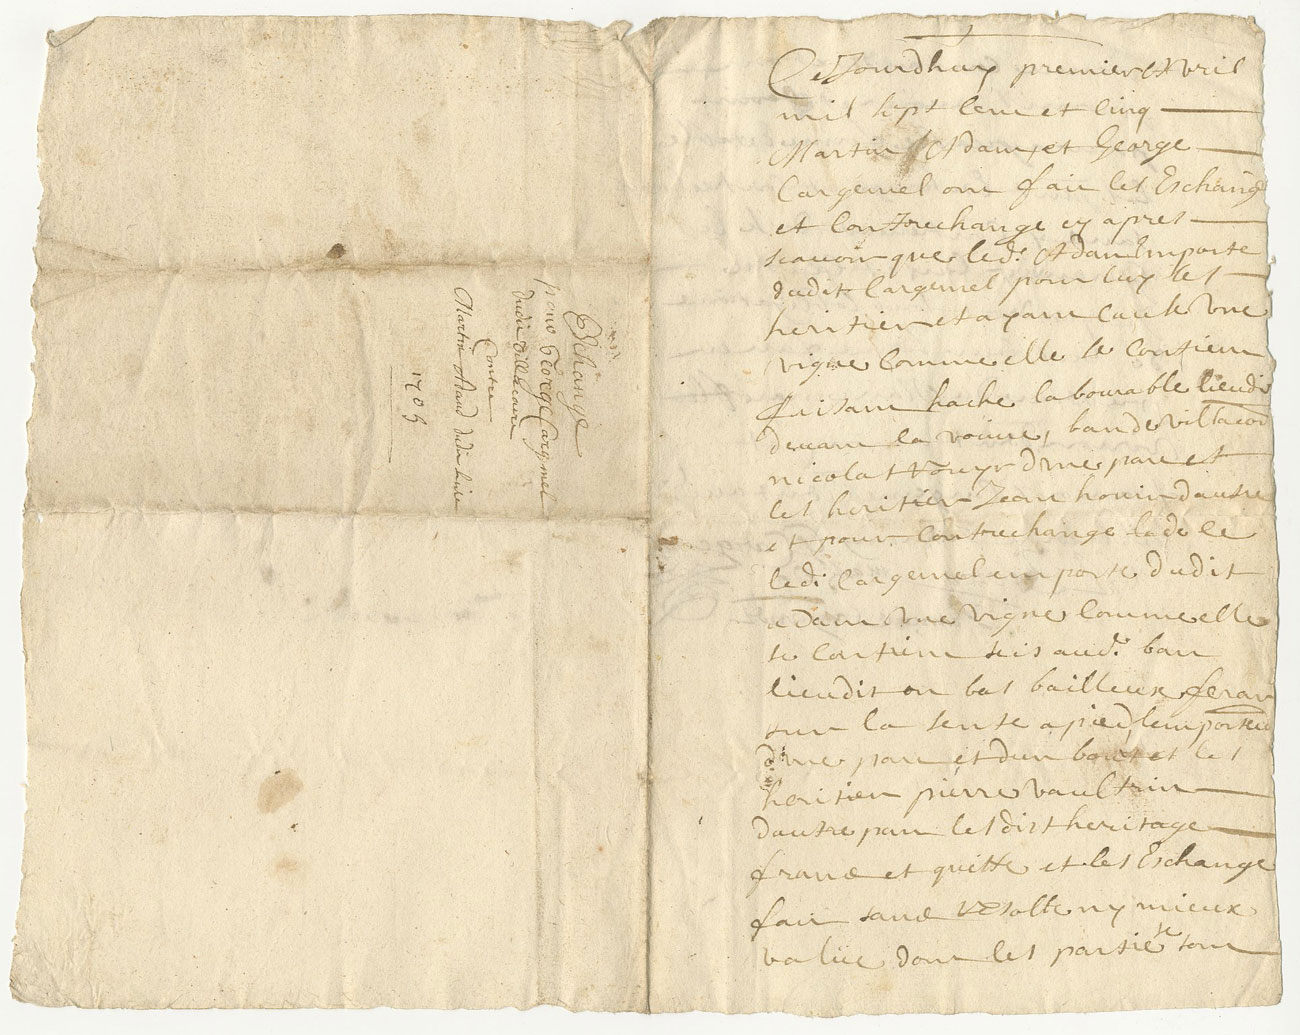 Echange
pour George Cargemel
dudit Villecourt
Contre
Martin Adam dudit lieu
1705
Ce Jourdhuy premier Avril
mil sept Cent et Cinq
Martin Adam, et George
Cargemel ont fait les Eschange
et Contrechange cy apres
scavoir que led: Adam Emporte
dudit Cargemel pour luy ses
heritier et ayant Cause Une
vigne Comme elle se Contient
faisant hache labourable lieudit
devant la voiive, ban de
nicolas d'une part et
les heritier Jean houin d'autre
et pour Contrechange de ce
led: Cargemel emporte dudit
adam Une vigne Comme elle
se Contient seis aud: ban
lieudit on bas bailleux
sur la sente a pied,
d'une part et d'un bout et les
heritier pierre vaultrin
d'autre part lesdist heritage
franc et quitte et les Eschange
fait sans resolte ny mieux
value dont les partie se sont